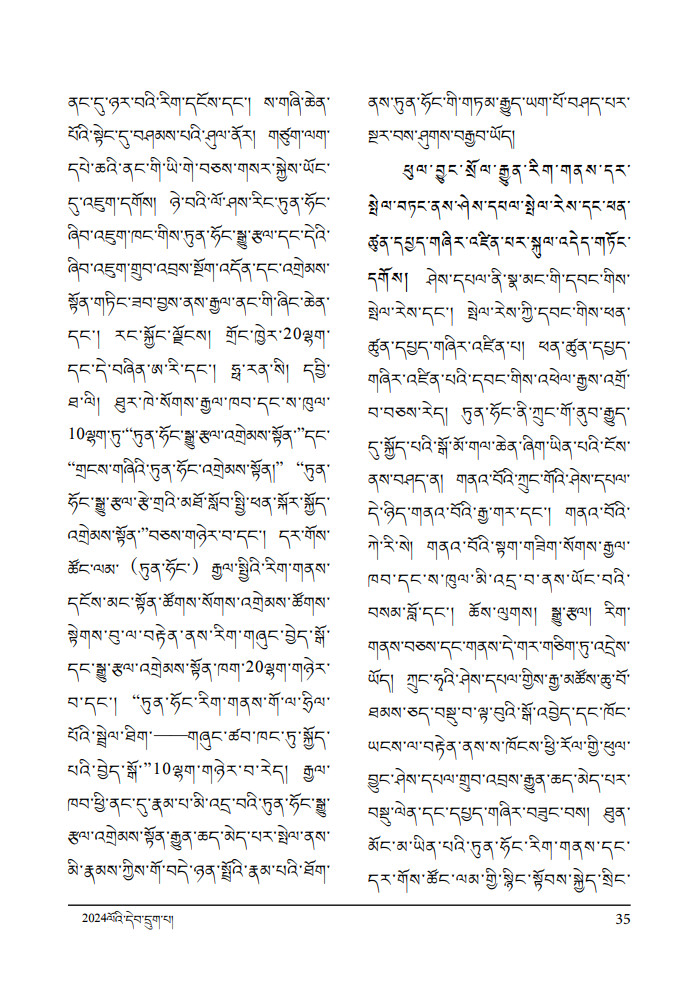 ནང་དུ་ཉར་བའི་རིག་དངོས་དང་། ས་གཞི་ཆེན་
པོའི་སྟེང་དུ་བཤམས་པའི་ཤུལ་ནོར། གཙུག་ལག་
དཔེ་ཆའི་ནང་གི་ཡི་གེ་བཅས་གསར་སྐྱེས་ཡོང་
དུ་འཇུག་དགོས། ཉེ་བའི་ལོ་ཤས་རིང་ཏུན་ཧོང་
ཞིབ་འཇུག་ཁང་གིས་ཏུན་ཧོང་སྒྱུ་རྩལ་དང་དེའི་
ཞིབ་འཇུག་གྲུབ་འབྲས་སྔོག་འདོན་དང་འགྲེམས་
སྟོན་གཏིང་ཟབ་བྱས་ནས་རྒྱལ་ནང་གི་ཞིང་ཆེན་
དང་། རང་སྐྱོང་ལྗོངས། གྲོང་ཁྱེར་20ལྷག་
དང་དེ་བཞིན་ཨ་རི་དང་། ཧྥ་རན་སི། དབྱི་
ཐ་ལི། ཐུར་ཁེ་སོགས་རྒྱལ་ཁབ་དང་ས་ཁུལ་
10ལྷག་ཏུ་“ཏུན་ཧོང་སྒྱུ་རྩལ་འགྲེམས་སྟོན་”དང་
“གྲངས་གཞིའི་ཏུན་ཧོང་འགྲེམས་སྟོན།” “ཏུན་
ཧོང་སྒྱུ་རྩལ་རྩེ་གྲའི་མཐོ་སློབ་སྤྱི་ཕན་སྐོར་སྐྱོད་
འགྲེམས་སྟོན་”བཅས་གཉེར་བ་དང་། དར་གོས་
ཚོང་ལམ་ (ཏུན་ཧོང་) རྒྱལ་སྤྱིའི་རིག་གནས་
དངོས་མང་སྟོན་ཚོགས་སོགས་འགྲེམས་ཚོགས་
སྟེགས་བུ་ལ་བརྟེན་ནས་རིག་གཞུང་བྱེད་སྒོ་
དང་སྒྱུ་རྩལ་འགྲེམས་སྟོན་ཁག་20ལྷག་གཉེར་
བ་དང་། “ཏུན་ཧོང་རིག་གནས་གོ་ལ་ཧྲིལ་
པོའི་སྦྲེལ་ཐིག་——གཞུང་ཚབ་ཁང་ཏུ་སྐྱོད་
པའི་བྱེད་སྒོ་”10ལྷག་གཉེར་བ་རེད། རྒྱལ་
ཁབ་ཕྱི་ནང་དུ་རྣམ་པ་མི་འདྲ་བའི་ཏུན་ཧོང་སྒྱུ་
རྩལ་འགྲེམས་སྟོན་རྒྱུན་ཆད་མེད་པར་སྤེལ་ནས་
མི་རྣམས་ཀྱིས་གོ་བདེ་ཉན་སྤྲོའི་རྣམ་པའི་ཐོག་
ནས་ཏུན་ཧོང་གི་གཏམ་རྒྱུད་ཡག་པོ་བཤད་པར་
སྔར་བས་ཤུགས་བརྒྱབ་ཡོད།
ཕུལ་བྱུང་སྲོལ་རྒྱུན་རིག་གནས་དར་
སྤེལ་བཏང་ནས་ཤེས་དཔལ་སྤེལ་རེས་དང་ཕན་
ཚུན་དཔྱད་གཞིར་འཛིན་པར་སྐུལ་འདེད་གཏོང་
དགོས། ཤེས་དཔལ་ནི་སྣ་མང་གི་དབང་གིས་
སྤེལ་རེས་དང་། སྤེལ་རེས་ཀྱི་དབང་གིས་ཕན་
ཚུན་དཔྱད་གཞིར་འཛིན་པ། ཕན་ཚུན་དཔྱད་
གཞིར་འཛིན་པའི་དབང་གིས་འཕེལ་རྒྱས་འགྲོ་
བ་བཅས་རེད། ཏུན་ཧོང་ནི་ཀྲུང་གོ་ནུབ་རྒྱུད་
དུ་སྐྱོད་པའི་སྒོ་མོ་གལ་ཆེན་ཞིག་ཡིན་པའི་ངོས་
ནས་བཤད་ན། གནའ་བོའི་ཀྲུང་གོའི་ཤེས་དཔལ་
དེ་ཉིད་གནའ་བོའི་རྒྱ་གར་དང་། གནའ་བོའི་
ཀེ་རི་སེ། གནའ་བོའི་སྟག་གཟིག་སོགས་རྒྱལ་
ཁབ་དང་ས་ཁུལ་མི་འདྲ་བ་ནས་ཡོང་བའི་
བསམ་བློ་དང་། ཆོས་ལུགས། སྒྱུ་རྩལ། རིག་
གནས་བཅས་དང་གནས་དེ་གར་གཅིག་ཏུ་འདྲེས་
ཡོད། ཀྲུང་ཧྭའི་ཤེས་དཔལ་གྱིས་རྒྱ་མཚོས་ཆུ་བོ་
ཐམས་ཅད་བསྡུ་བ་ལྟ་བུའི་སྒོ་འབྱེད་དང་ཁོང་
ཡངས་ལ་བརྟེན་ནས་ས་ཁོངས་ཕྱི་རོལ་གྱི་ཕུལ་
བྱུང་ཤེས་དཔལ་གྲུབ་འབྲས་རྒྱུན་ཆད་མེད་པར་
བསྡུ་ལེན་དང་དཔྱད་གཞིར་བཟུང་བས། ཐུན་
མོང་མ་ཡིན་པའི་ཏུན་ཧོང་རིག་གནས་དང་
དར་གོས་ཚོང་ལམ་གྱི་སྙིང་སྟོབས་སྐྱེད་སྲིང་
2024ལོའི་དེབ་དྲུག་པ། 35